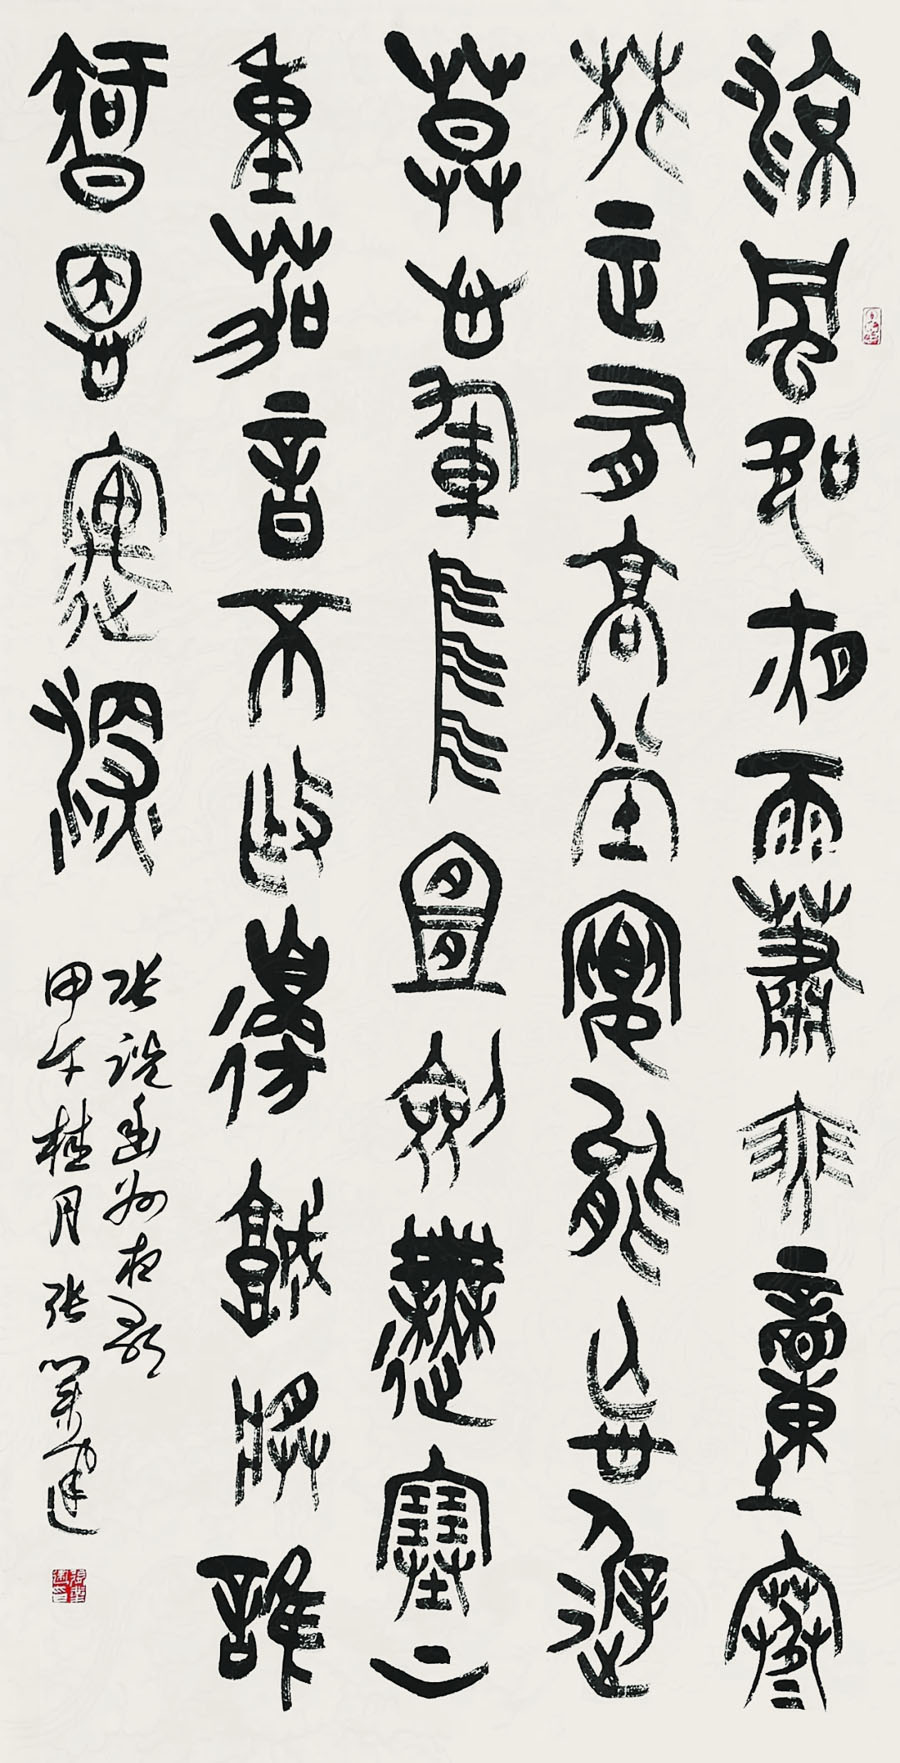 涼風吹夜雨蕭瑟動寒
林正有高堂宴能忘遲
莫心軍中宜劍舞塞二
重茄音不作邊城將誰
智恩寒深
张説幽州夜飲
甲午桂月张業建